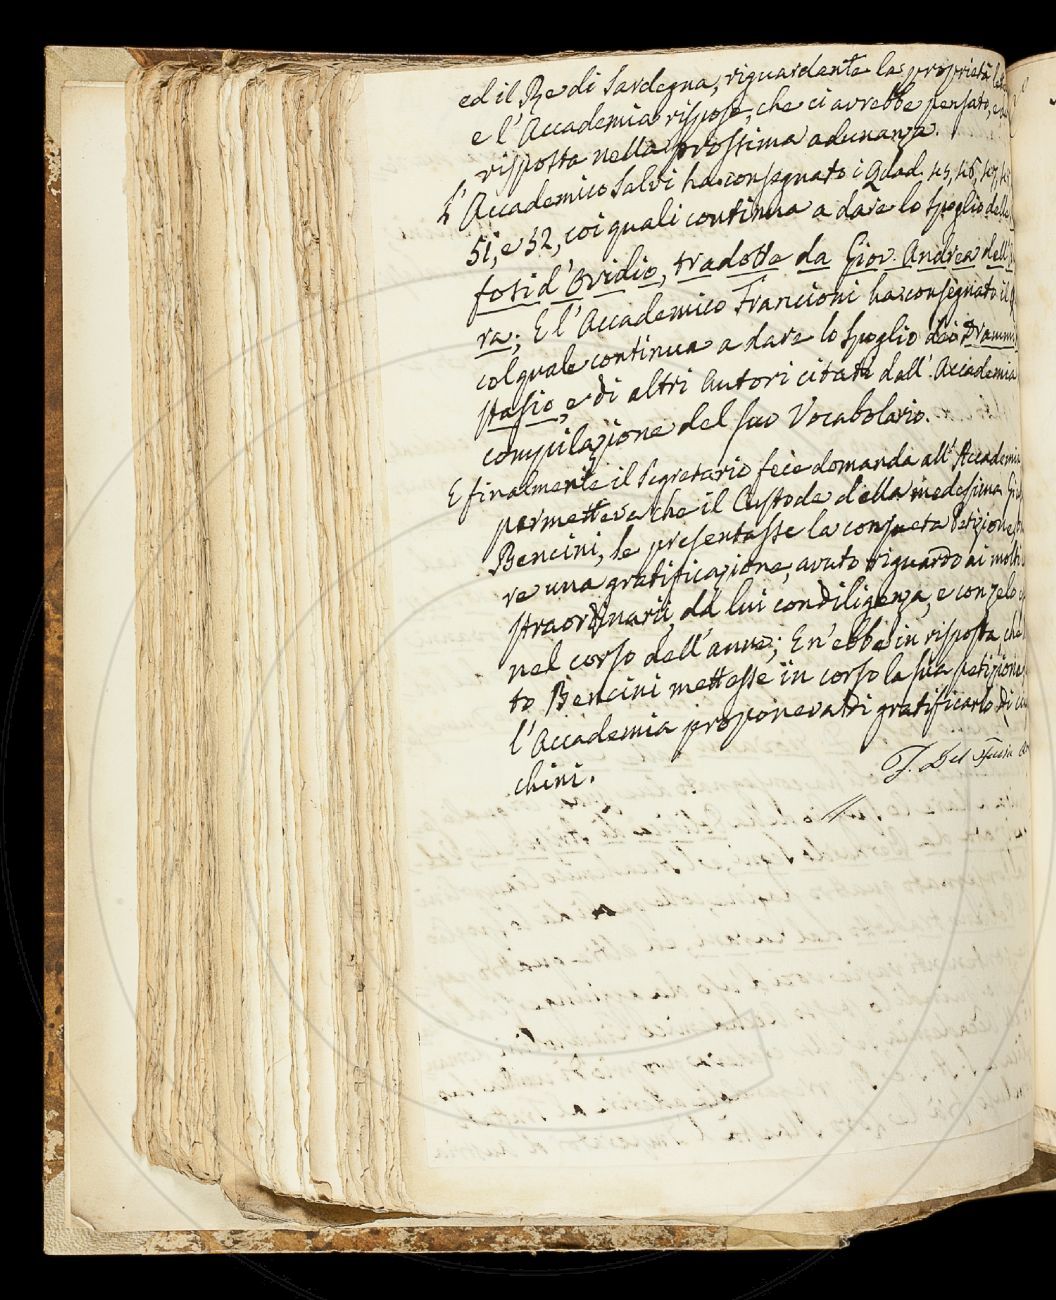 ed il Re di Sardegna, riguardante la proprietà
e l'Accademia rispose, che ci avrebbe pensato, e
risposta nella prossima adunanza.
L'Accademico Salvi ha consegnato i Quad. 45, 46, 47,
51, e 52, coi quali continua a dare lo spoglio delle
fosi d'Ovidio, tradotte da Giov. Andrea dell'
ra; E l'Accademico Francioni ha consegnato il
col quale continua a dare lo spoglio dei Drammi
stasio, e di altri Autori citati dall'Accademia
compilazione del suo Vocabolario.
E finalmente il Segretario fece domanda all'Accademia
permetteva che il Custode della medesima
Bencini, le presentasse la consueta Petizione
re una gratificazione, avuto riguardo ai molti
straordinarii, da lui con diligenza, e con zelo
nel corso dell'anno; E n'ebbe in risposta, che
to Bencini mettesse in corso la sua petizione
l'Accademia proponeva di gratificarlo di
chini.
F. Del Furia